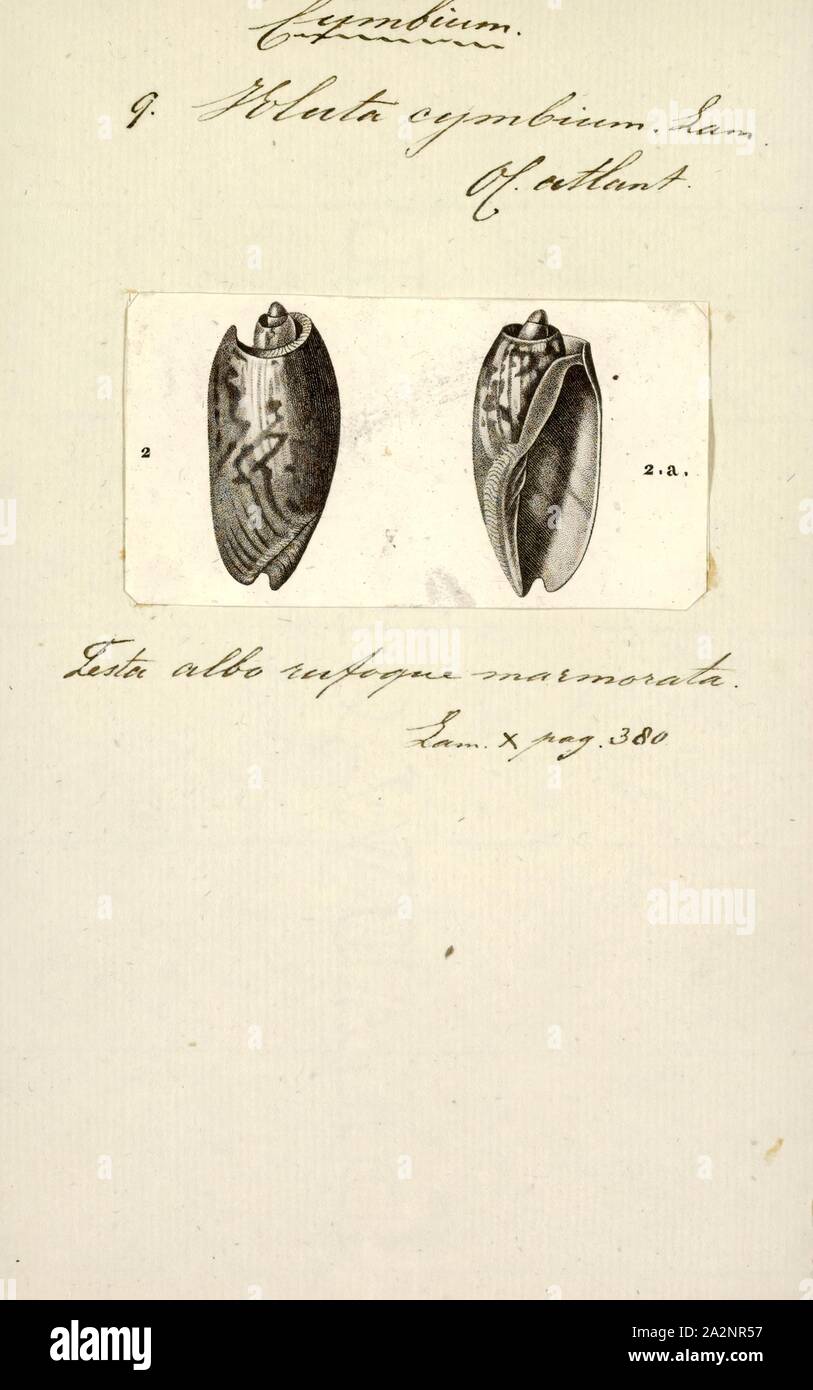 Cymbium.
9. Voluta cymbium. Lam
Oc. atlant.
2
2.a.
Testa albo rufoque marmorata.
Lam. x pag. 380
alamy
a
alamy
Image ID: 2A2NR57
www.alamy.com